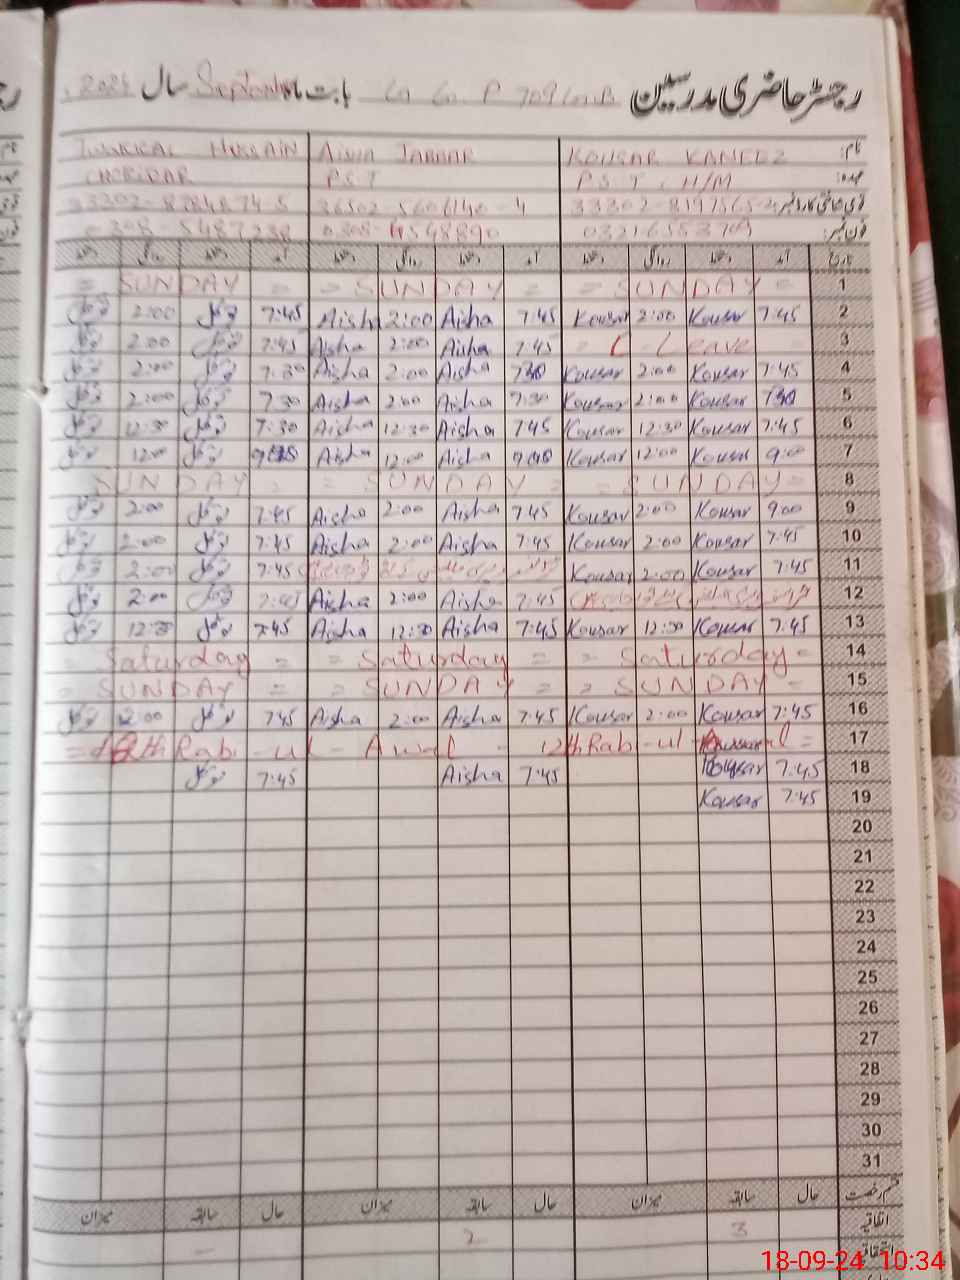 رجسٹر حاضری مدرسین G G P S 709 G.B بابت ماہ September سال 2024
نام: KOUSAR KANEEZ AISHA JABBAR HUSSAIN
عہدہ: P.S.T, H/M P.S.T CHOKIDAR
قومی شناختی کارڈ نمبر
فون نمبر: 0308-4548890 0308-5487238
تاریخ آمد دستخط روانگی دستخط آمد دستخط روانگی دستخط آمد دستخط روانگی دستخط
1 = SUNDAY = = SUNDAY = = SUNDAY =
2 7:45 Kousar 2:00 Kousar 7:45 Aisha 2:00 Aisha 7:45 توکل 2:00 توکل
3 C - Leave 7:45 Aisha 2:00 Aisha 7:45 توکل 2:00 توکل
4 7:45 Kousar 2:00 Kousar 7:30 Aisha 2:00 Aisha 7:30 توکل 2:00 توکل
5 7:30 Kousar 2:00 Kousar 7:30 Aisha 2:00 Aisha 7:30 توکل 2:00 توکل
6 7:45 Kousar 12:30 Kousar 7:45 Aisha 12:30 Aisha 7:30 توکل 12:30 توکل
7 9:00 Kousar 12:00 Kousar 9:00 Aisha 12:00 Aisha 9:00 توکل 12:00 توکل
8 = SUNDAY = = SUNDAY = = SUNDAY
9 9:00 Kousar 2:00 Kousar 7:45 Aisha 2:00 Aisha 7:45 توکل 2:00 توکل
10 7:45 Kousar 2:00 Kousar 7:45 Aisha 2:00 Aisha 7:45 توکل 2:00 توکل
11 7:45 Kousar 2:00 Kousar 7:45 توکل 2:00 توکل
12 7:45 Aisha 2:00 Aisha 7:45 توکل 2:00 توکل
13 7:45 Kousar 12:30 Kousar 7:45 Aisha 12:30 Aisha 7:45 توکل 12:30 توکل
14 = Saturday = = Saturday = = Saturday =
15 = SUNDAY = = SUNDAY = = SUNDAY =
16 7:45 Kousar 2:00 Kousar 7:45 Aisha 2:00 Aisha 7:45 توکل 2:00 توکل
17 = 12th Rab-ul-Awal - 12th Rab-ul-Awal =
18 7:45 Kousar 7:45 Aisha 7:45 توکل
19 7:45 Kousar
20
21
22
23
24
25
26
27
28
29
30
31
قسم رخصت حال سابقہ میزان حال سابقہ میزان حال سابقہ میزان
اتفاقیہ 3 2 -
استحقاقی
18-09-24 10:34